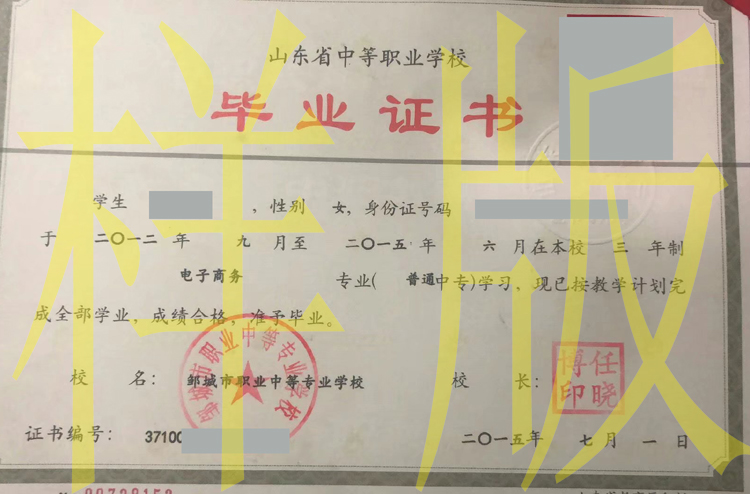 山东省中等职业学校
毕业证书
学生 ，性别 女，身份证号码
于 二〇一二 年 九 月至 二〇一五 年 六 月在本校 三 年制
电子商务 专业( 普通中专)学习，现已按教学计划完
成全部学业，成绩合格，准予毕业。
校 名： 邹城市职业中等专业学校 校 长：
邹城市职业中等专业学校
博任
印晓
证书编号： 37100 二〇一五年 七 月 一 日
样版